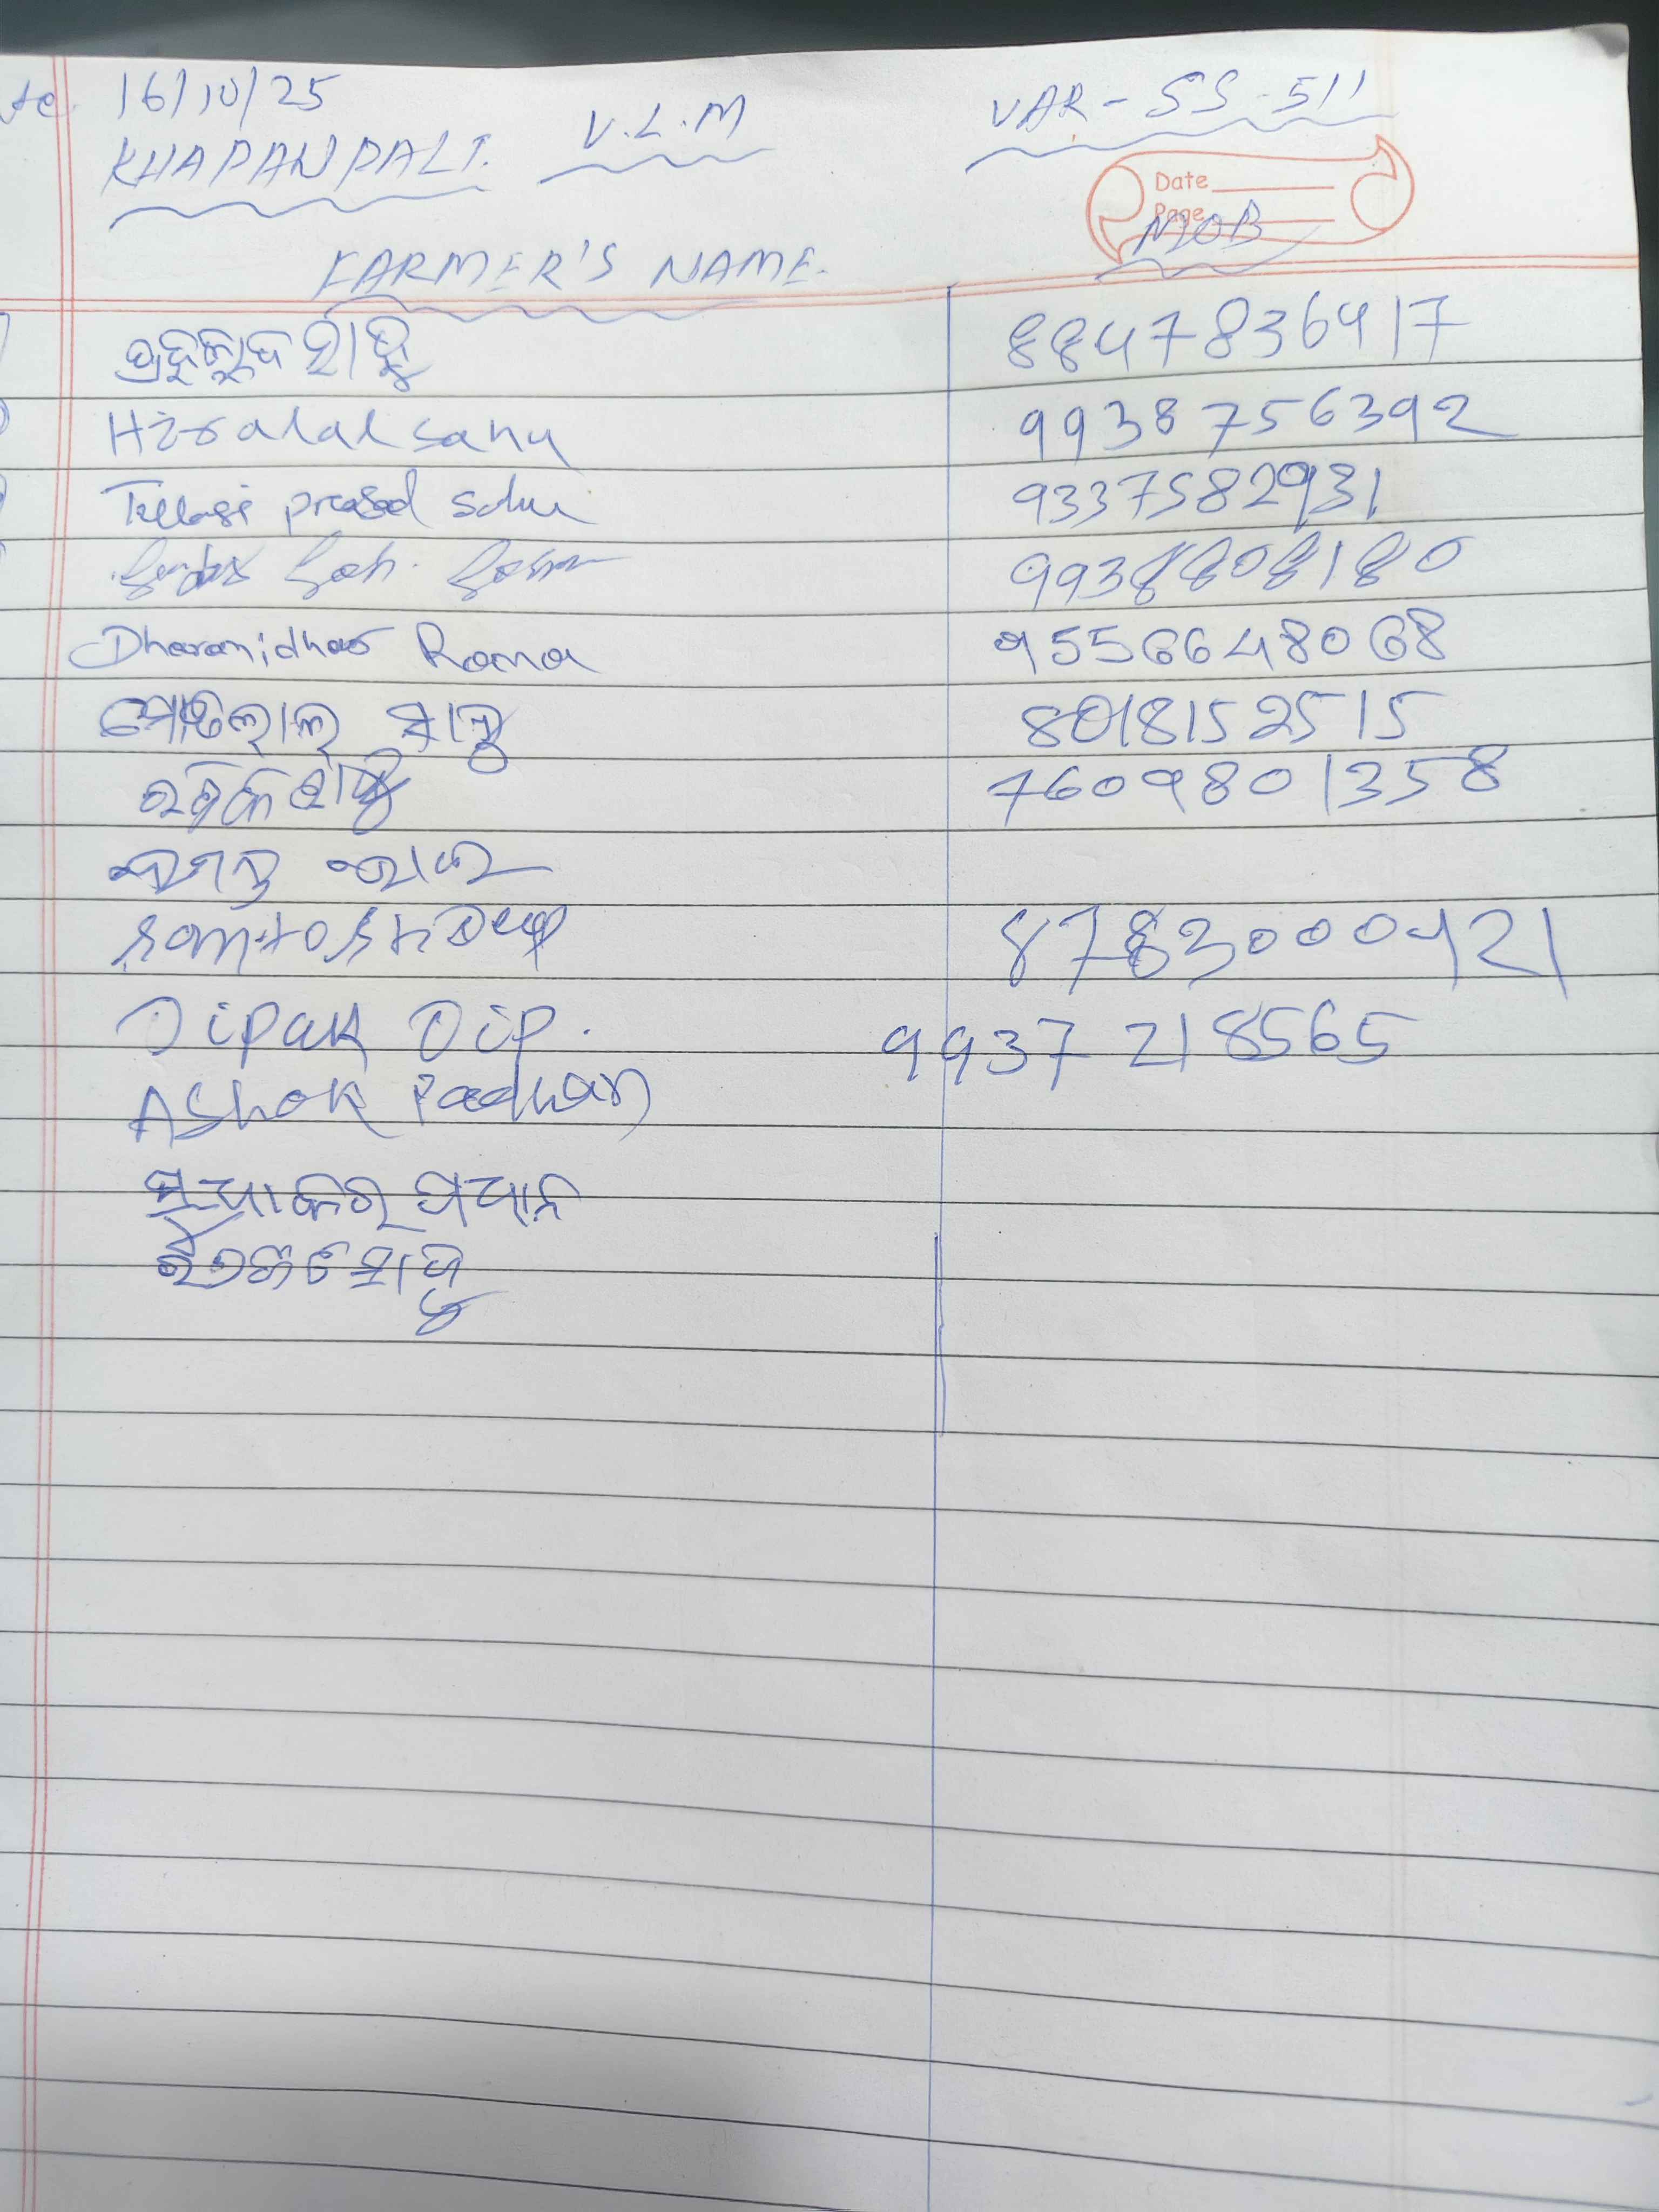 te. 16/10/25 V.L.M VAR - SS-511
KHAPANPALI.
Date
Page
FARMER'S NAME. MOB
ପ୍ରହଲ୍ଲାଦ ସାହୁ 8847836417
Hiralal sahu 9938756392
Tullasi prasad sahu 9337582931
9938808180
Dharanidhar Rana 9556648068
ମୋତିଲାଲ ସାହୁ 8018152515
ସାହୁ 7609801358
Santosh Deep 8783000421
Dipak Dip. 9937218565
Ashok Padhan
ସୁଧାକର ପ୍ରଧାନ
ସାହୁ